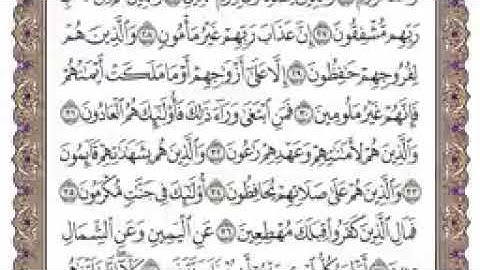 رَبِّهِم مُّشْفِقُونَ ٢٧ إِنَّ عَذَابَ رَبِّهِمْ غَيْرُ مَأْمُونٍ ٢٨ وَٱلَّذِينَ هُمْ
لِفُرُوجِهِمْ حَٰفِظُونَ ٢٩ إِلَّا عَلَىٰٓ أَزْوَٰجِهِمْ أَوْ مَا مَلَكَتْ أَيْمَٰنُهُمْ
فَإِنَّهُمْ غَيْرُ مَلُومِينَ ٣٠ فَمَنِ ٱبْتَغَىٰ وَرَآءَ ذَٰلِكَ فَأُو۟لَٰٓئِكَ هُمُ ٱلْعَادُونَ ٣١
وَٱلَّذِينَ هُمْ لِأَمَٰنَٰتِهِمْ وَعَهْدِهِمْ رَٰعُونَ ٣٢ وَٱلَّذِينَ هُم بِشَهَٰدَٰتِهِمْ قَآئِمُونَ
٣٣ وَٱلَّذِينَ هُمْ عَلَىٰ صَلَاتِهِمْ يُحَافِظُونَ ٣٤ أُو۟لَٰٓئِكَ فِى جَنَّٰتٍ مُّكْرَمُونَ ٣٥
فَمَالِ ٱلَّذِينَ كَفَرُوا۟ قِبَلَكَ مُهْطِعِينَ ٣٦ عَنِ ٱلْيَمِينِ وَعَنِ ٱلشِّمَالِ